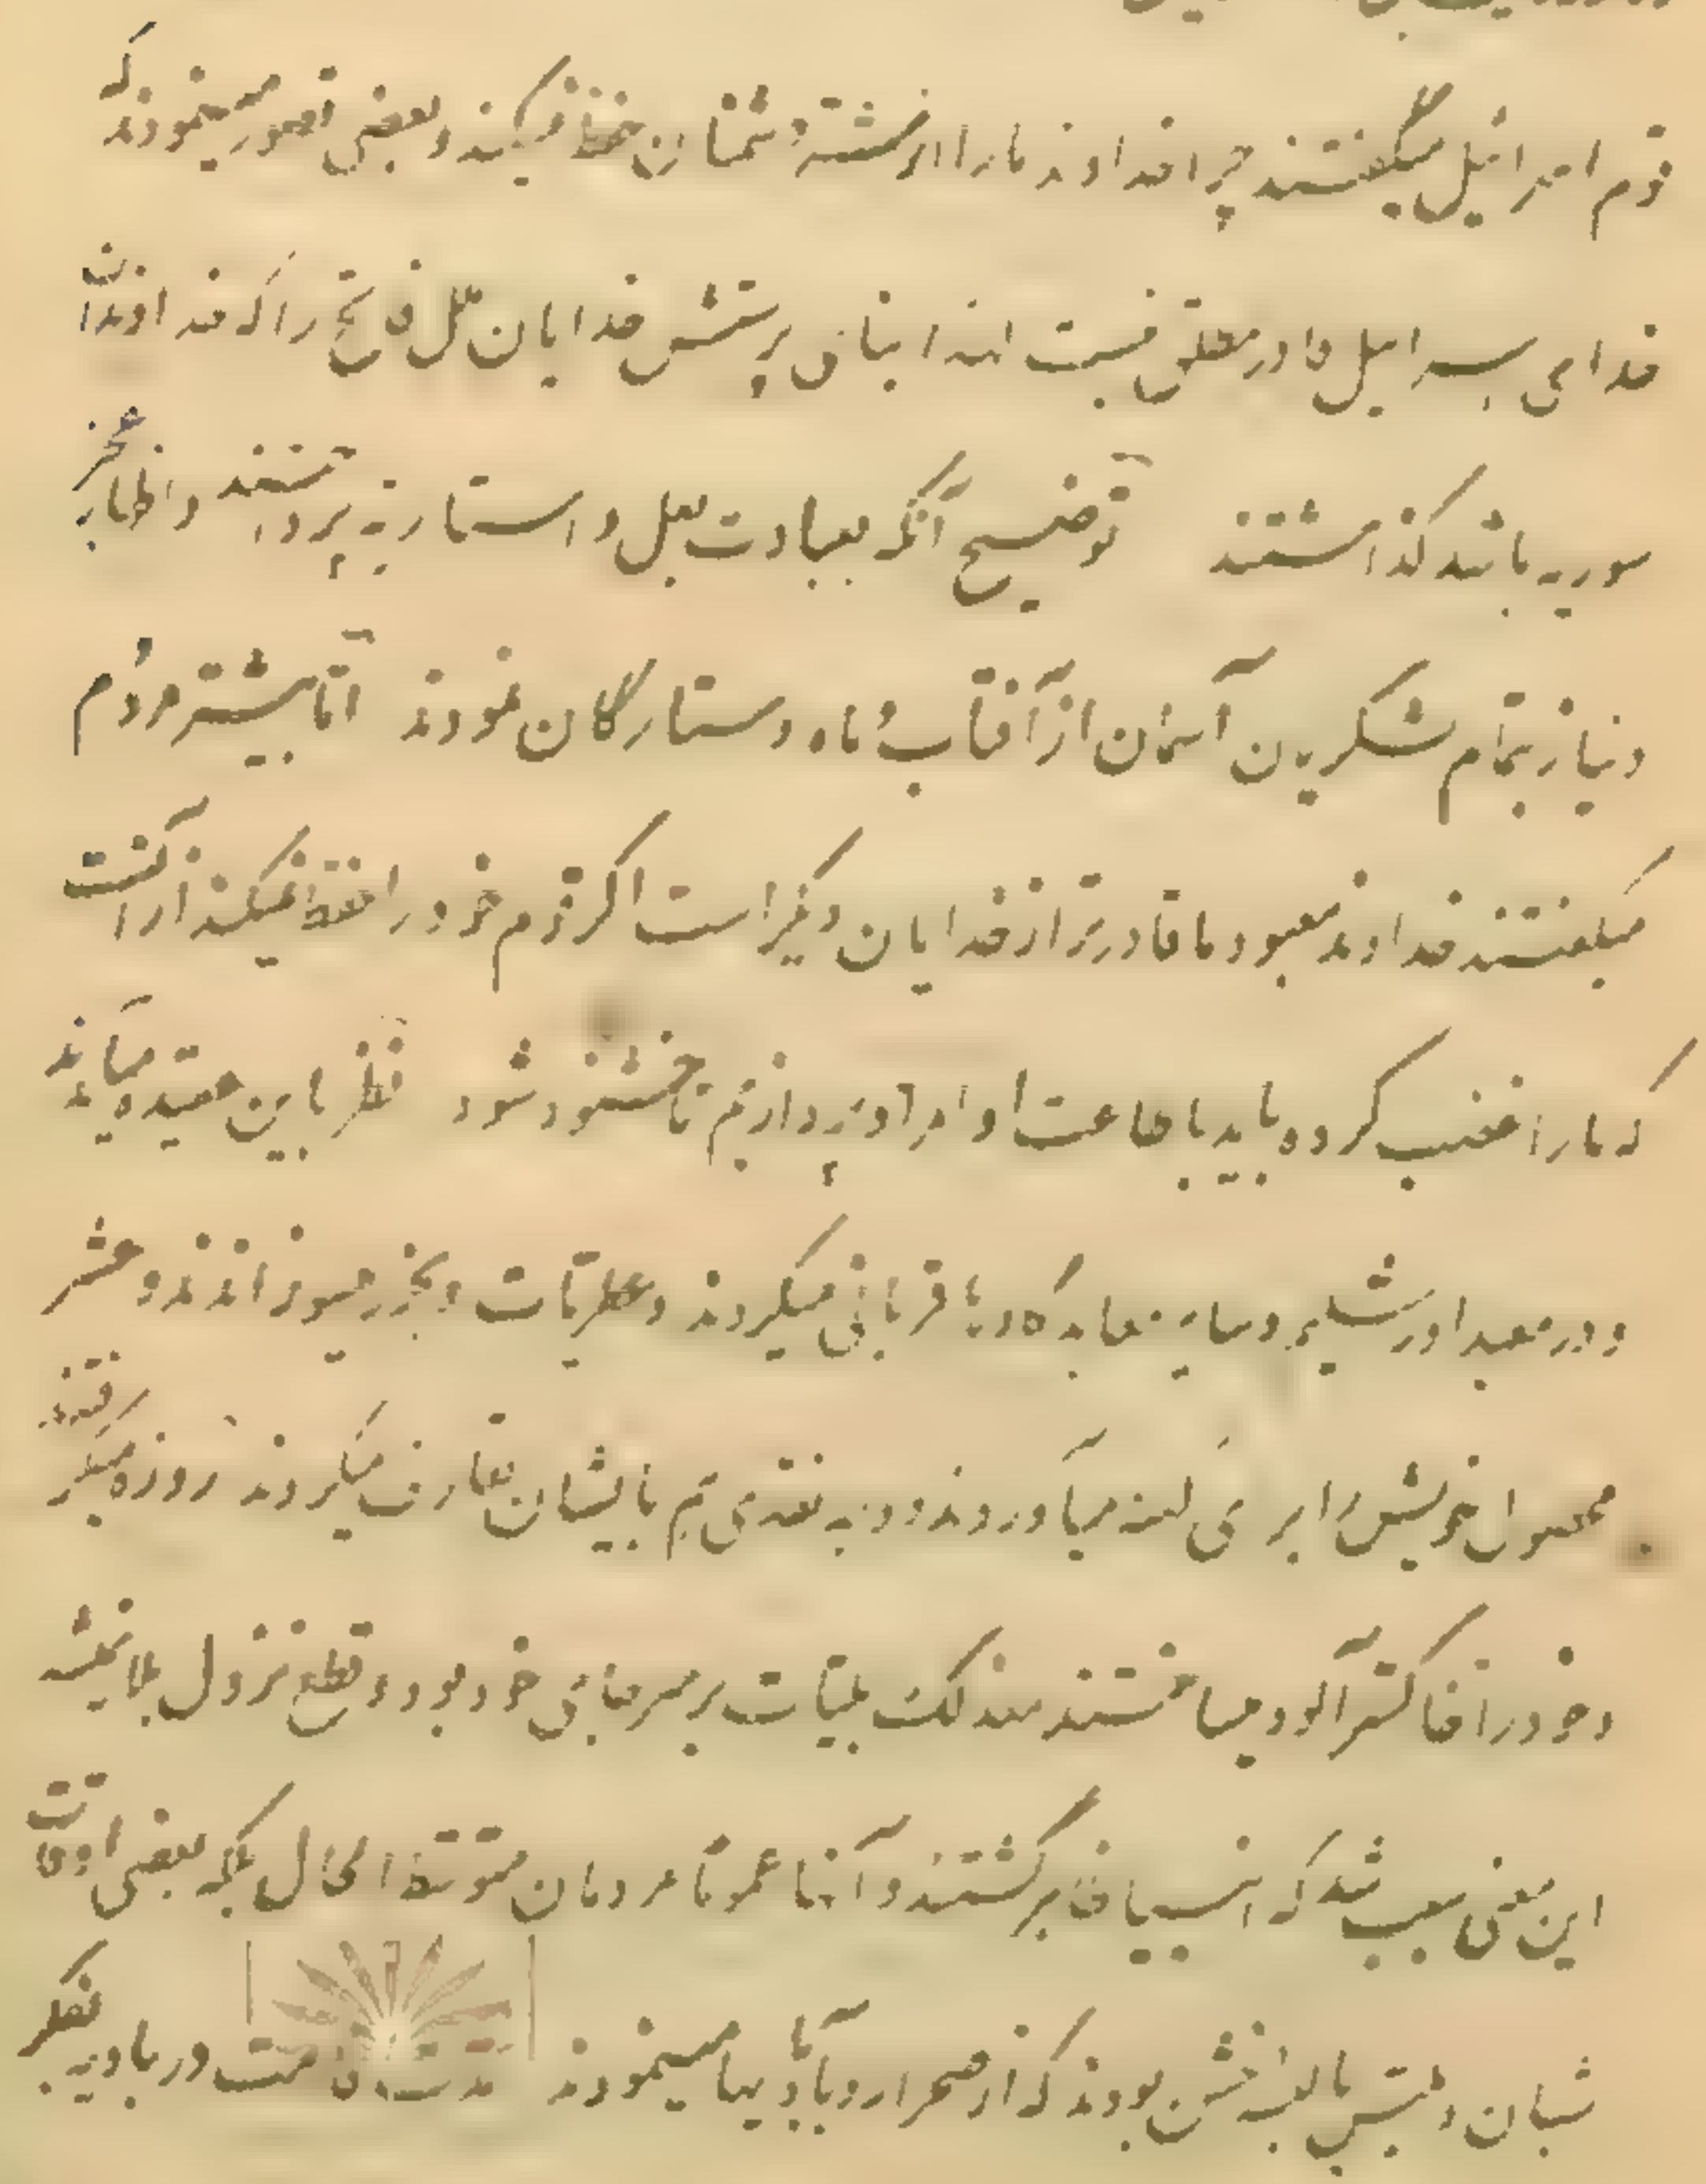 قوم اسرائیل میگفتند چرا خداوند ما را از شر دشمنان حفظ نمیکند و بعضی تصور مینمودند که
خدای اسرائیل قادر مطلق نیست لهذا بنای پرستش خدایان ملل فاتح را که خداوندان
سوریه باشد گذاشتند توضیح آنکه بعبادت بعل و استاریه پرداختند و اظهار عجز
و نیاز بتمام لشکریان آسمان از آفتاب و ماه و ستارگان نمودند اما بیشتر مردم
میگفتند خداوند معبود ما قادرتر از خدایان دیگر است اگر قوم خود را حفظ نمیکند از آنست
که ما را غضب کرده باید باطاعت اوامر او بپردازیم تا خشنود شود نظر باین عقیده میآیند
و در معبد اورشلیم و سایر معابد گاو و یا قربانی میکردند و عطریات و بخور میسوزاندند و عشر
محصول خویش را برای کهنه میآوردند و وجه نقدی هم بایشان تعارف میکردند روزه میگرفتند
و خود را خاکستر آلود میساختند معذلک بلیات بر سر جای خود بود و قطع نزول بلا نمیشد
این معنی سبب شد که انبیا برگشتند و آنها عموما مردمان متوسط الحال بلکه بعضی اوقات
شبان و ملبس بالبسه خشن بودند که از صحرا رو بآبادیها مینمودند مدت در بادیه بفکر